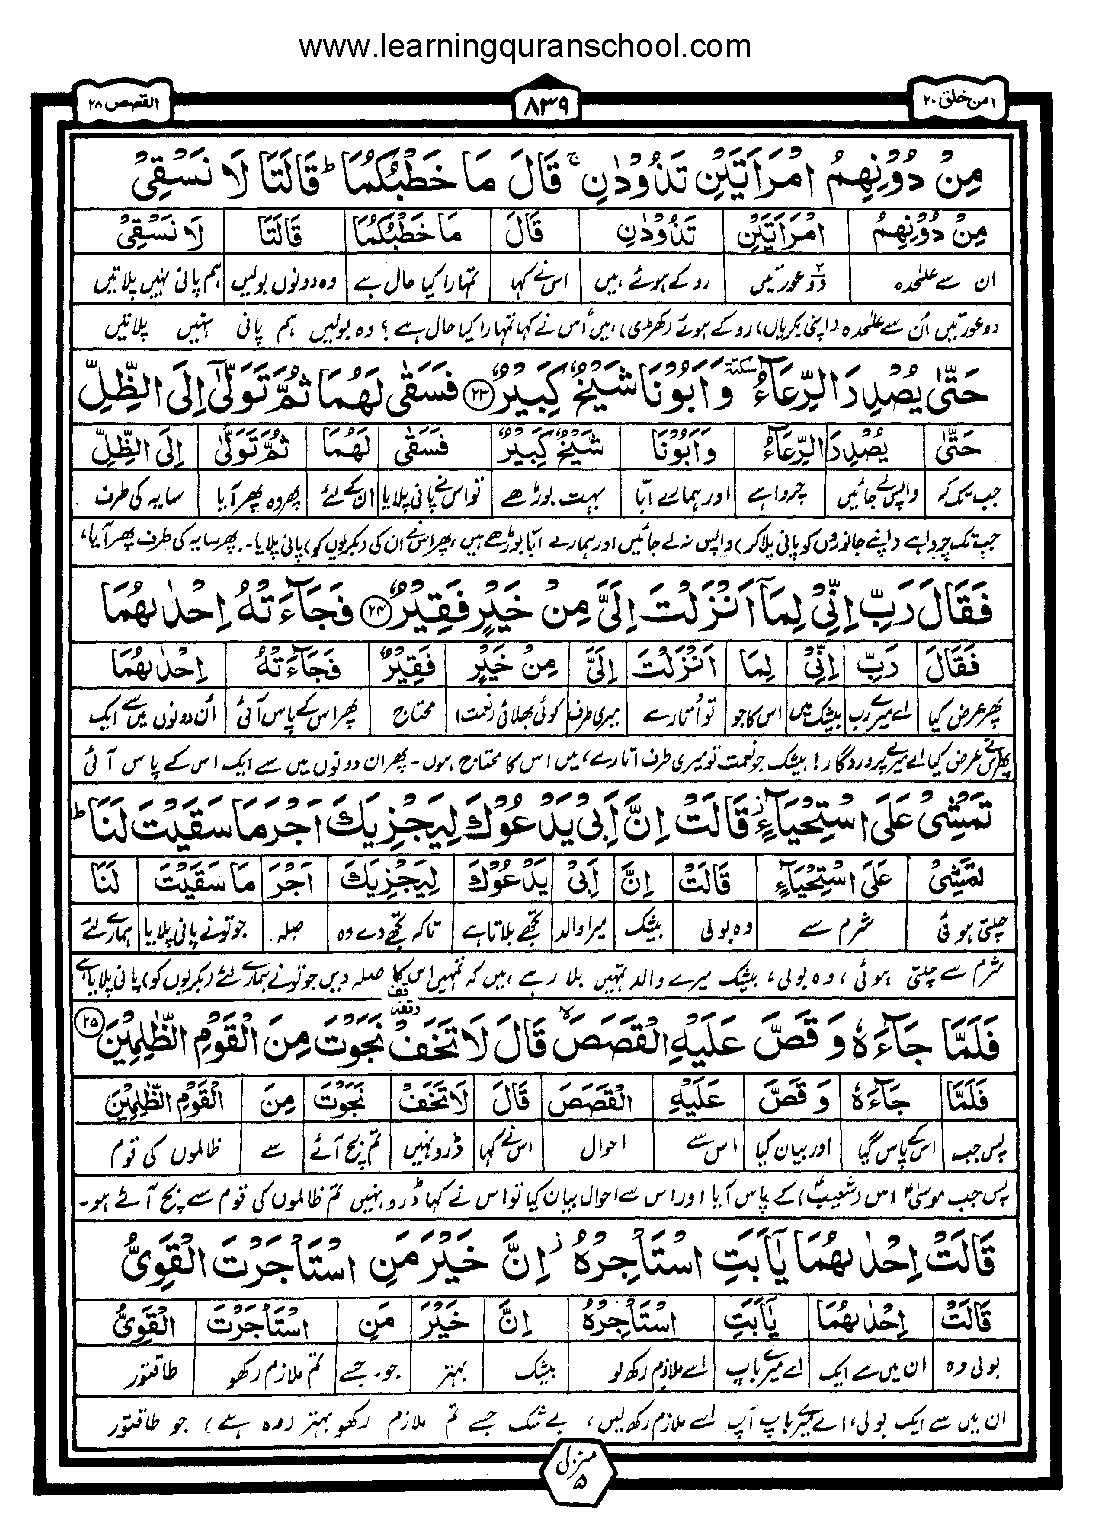 www.learningquranschool.com
امن خلق ۲۰ ۸۳۹ القصص ۲۸
مِنْ دُوْنِهِمُ امْرَاَتَيْنِ تَذُوْدٰنِ ۚ قَالَ مَا خَطْبُكُمَا ؕ قَالَتَا لَا نَسْقِیْ
مِنْ دُوْنِهِمُ امْرَاَتَيْنِ تَذُوْدٰنِ قَالَ مَا خَطْبُكُمَا قَالَتَا لَا نَسْقِیْ
ان سے علیٰحدہ دو عورتیں روکے ہوئے ہیں اس نے کہا تمہارا کیا حال ہے وہ دونوں بولیں ہم پانی نہیں پلاتیں
دو عورتیں اُن سے علیٰحدہ (اپنی بکریاں) روکے ہوئے (کھڑی) ہیں اُس نے کہا تمہارا کیا حال ہے؟ وہ بولیں ہم پانی نہیں پلاتیں
حَتّٰى يُصْدِرَ الرِّعَآءُ ٚ وَاَبُوْنَا شَيْخٌ كَبِيْرٌ ﴿۲۳﴾ فَسَقٰى لَهُمَا ثُمَّ تَوَلّٰۤى اِلَى الظِّلِّ
حَتّٰى يُصْدِرَ الرِّعَآءُ وَاَبُوْنَا شَيْخٌ كَبِيْرٌ فَسَقٰى لَهُمَا ثُمَّ تَوَلّٰى اِلَى الظِّلِّ
جب تک کہ واپس لے جائیں چرواہے اور ہمارے ابّا بہت بوڑھے تو اس نے پانی پلایا ان کے لئے پھر وہ پھر آیا سایہ کی طرف
جب تک چرواہے (اپنے جانوروں کو پانی پلا کر) واپس نہ لے جائیں اور ہمارے ابّا بوڑھے ہیں، پھر اس نے ان کی (بکریوں کو) پانی پلایا۔ پھر سایہ کی طرف پھر آیا،
فَقَالَ رَبِّ اِنِّیْ لِمَاۤ اَنْزَلْتَ اِلَیَّ مِنْ خَيْرٍ فَقِيْرٌ ﴿۲۴﴾ فَجَآءَتْهُ اِحْدٰىهُمَا
فَقَالَ رَبِّ اِنِّیْ لِمَا اَنْزَلْتَ اِلَیَّ مِنْ خَيْرٍ فَقِيْرٌ فَجَآءَتْهُ اِحْدٰىهُمَا
پھر عرض کیا اے میرے رب بیشک میں اس کا جو تو اُتارے میری طرف کوئی بھلائی (نعمت) محتاج پھر اس کے پاس آئی اُن دونوں میں سے ایک
پھر اس نے عرض کیا اے میرے پروردگار! بیشک جو نعمت تو میری طرف اتارے، میں اس کا محتاج ہوں۔ پھر ان دونوں میں سے ایک اس کے پاس آئی
تَمْشِیْ عَلَى اسْتِحْيَآءٍ ؗ قَالَتْ اِنَّ اَبِیْ يَدْعُوْكَ لِيَجْزِيَكَ اَجْرَ مَا سَقَيْتَ لَنَا ؕ
تَمْشِیْ عَلَى اسْتِحْيَآءٍ قَالَتْ اِنَّ اَبِیْ يَدْعُوْكَ لِيَجْزِيَكَ اَجْرَ مَا سَقَيْتَ لَنَا
چلتی ہوئی شرم سے وہ بولی بیشک میرا والد تجھے بلاتا ہے تاکہ تجھے دے وہ صلہ جو تو نے پانی پلایا ہمارے لئے
شرم سے چلتی ہوئی، وہ بولی، بیشک میرے والد تمہیں بلا رہے ہیں کہ تمہیں اس کا صلہ دیں جو تو نے ہمارے لئے (بکریوں کو) پانی پلایا ہے
فَلَمَّا جَآءَهٗ وَقَصَّ عَلَيْهِ الْقَصَصَ ۙ قَالَ لَا تَخَفْ ۥ نَجَوْتَ مِنَ الْقَوْمِ الظّٰلِمِيْنَ ﴿۲۵﴾
فَلَمَّا جَآءَهٗ وَقَصَّ عَلَيْهِ الْقَصَصَ قَالَ لَا تَخَفْ نَجَوْتَ مِنَ الْقَوْمِ الظّٰلِمِيْنَ
پس جب اس کے پاس گیا اور بیان کیا اس سے احوال اس نے کہا ڈرو نہیں تم بچ آئے سے ظالموں کی قوم
پس جب موسٰیؑ اس (شعیبؑ) کے پاس آیا اور اس سے احوال بیان کیا تو اس نے کہا ڈرو نہیں تم ظالموں کی قوم سے بچ آئے ہو۔
قَالَتْ اِحْدٰىهُمَا يٰۤاَبَتِ اسْتَاْجِرْهُ ؗ اِنَّ خَيْرَ مَنِ اسْتَاْجَرْتَ الْقَوِیُّ
قَالَتْ اِحْدٰىهُمَا يٰۤاَبَتِ اسْتَاْجِرْهُ اِنَّ خَيْرَ مَنِ اسْتَاْجَرْتَ الْقَوِیُّ
بولی وہ ان میں سے ایک اے میرے باپ اسے ملازم رکھ لو بیشک بہتر جو۔ جسے تم ملازم رکھو طاقتور
ان میں سے ایک بولی، اے میرے باپ آپ اسے ملازم رکھ لیں، بے شک جسے تم ملازم رکھو بہتر (وہ ہے) جو طاقتور
منزل ۵